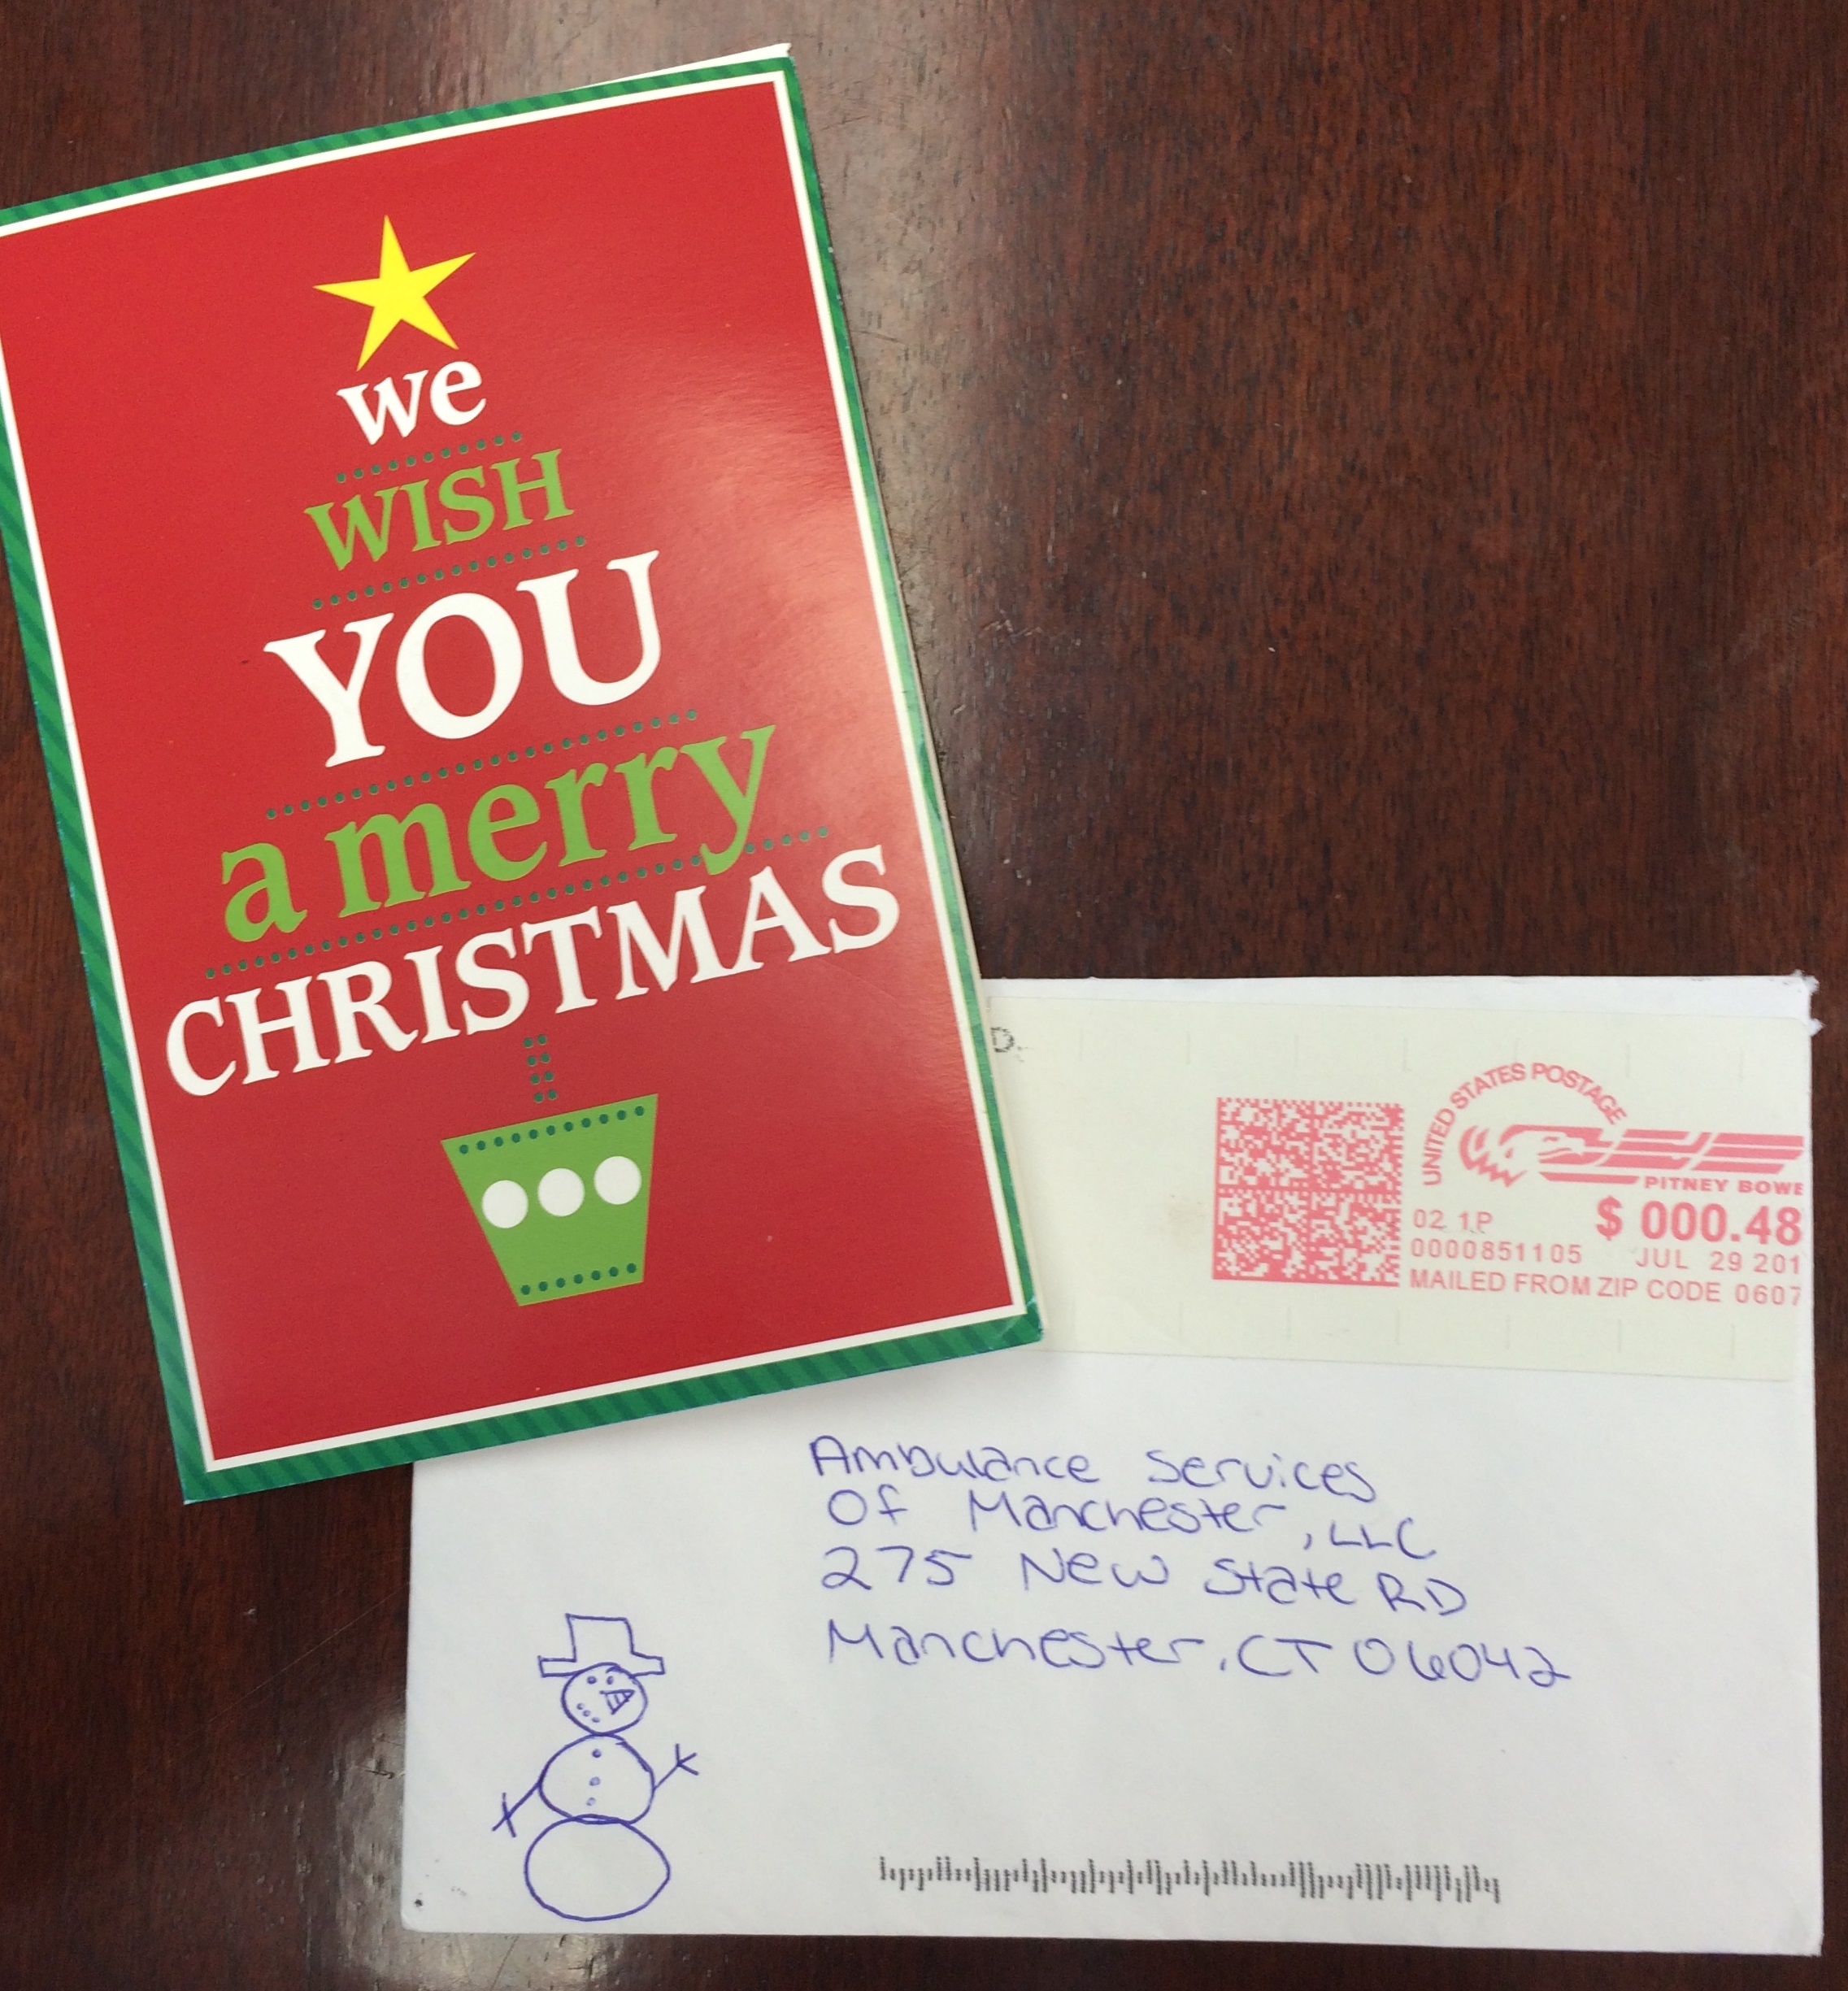 we
WISH
YOU
a merry
CHRISTMAS
D.
UNITED STATES POSTAGE
PITNEY BOWE
02 1P
$ 000.48
0000851105
JUL 29 201
MAILED FROM ZIP CODE 0607
Ambulance Services
Of Manchester, LLC
275 New State RD
Manchester, CT 06042